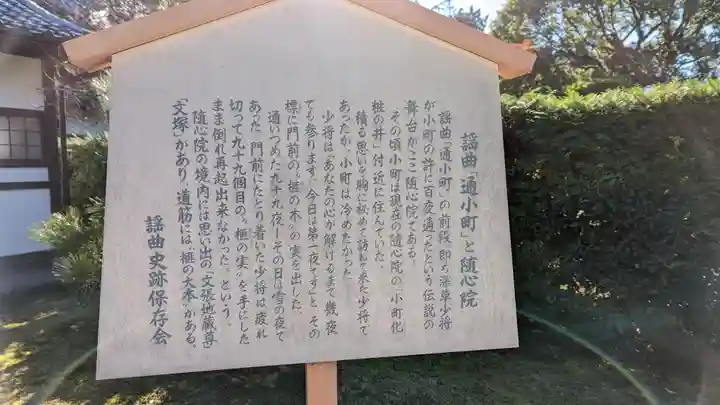 謡曲「通小町」と随心院
謡曲「通小町」の前段、即ち深草少将
が小町の許に百夜通ったという伝説の
舞台がここ随心院である。
その頃小町は現在の随心院の「小町化
粧の井」付近に住んでいた。
積る思いを胸に秘めて訪ねて来た少将で
あったが、小町は冷めたかった。
少将は「あなたの心が解けるまで幾夜
でも参ります。今日は第一夜です」と、その
標に門前の〝榧の木〟の実を出した。
通いつめた九十九夜―その日は雪の夜で
あった―門前にたどり着いた少将は疲れ
切って九十九個目の〝榧の実〟を手にした
まま倒れ再起出来なかった。という。
随心院の境内には思い出の「文張地蔵尊」
「文塚」があり、道筋には、榧の大木がある。
謡曲史跡保存会